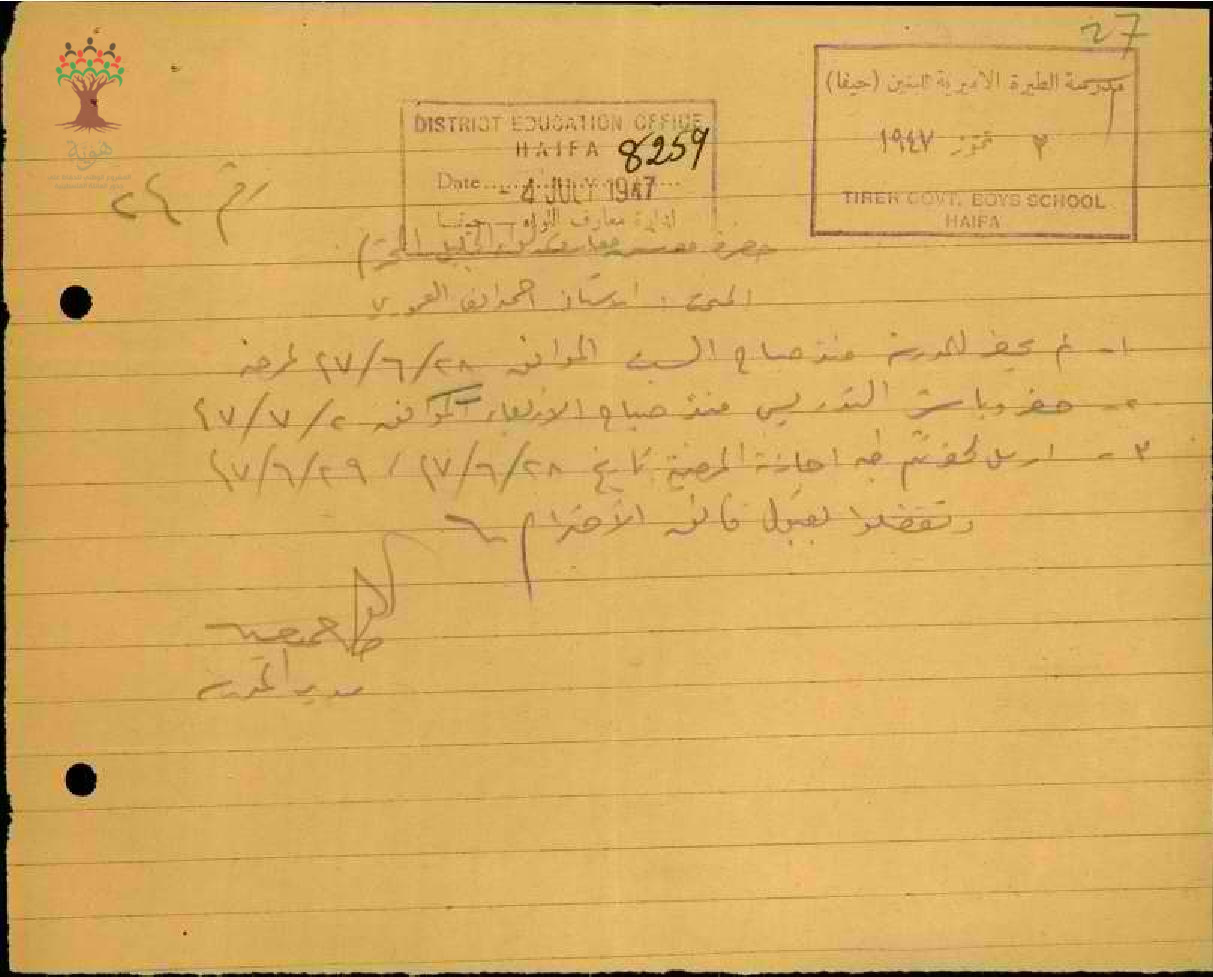 27
مدرسة الطيرة الاميرية للبنين (حيفا)
٣ تموز ١٩٤٧
TIREH GOVT. BOYS SCHOOL
HAIFA
DISTRICT EDUCATION OFFICE
HAIFA
8259
Date - 4 JULY 1947
ادارة معارف اللواء - حيفا
هوية
حضرة مفتش معارف لواء الجليل المحترم
الاستاذ احمد
١- لم يحضر للمدرسة منذ صباح السبت الموافق ٢٨/٦/٤٧ لمرضه
٢- حضر وباشر التدريس منذ صباح الاربعاء الموافق ٢/٧/٤٧
٣- ارسل لحضرتكم طيه اجازته المرضية بتاريخ ٢٨/٦/٤٧ ، ٢٩/٦/٤٧
وتفضلوا بقبول فائق الاحترام
مدير المدرسة